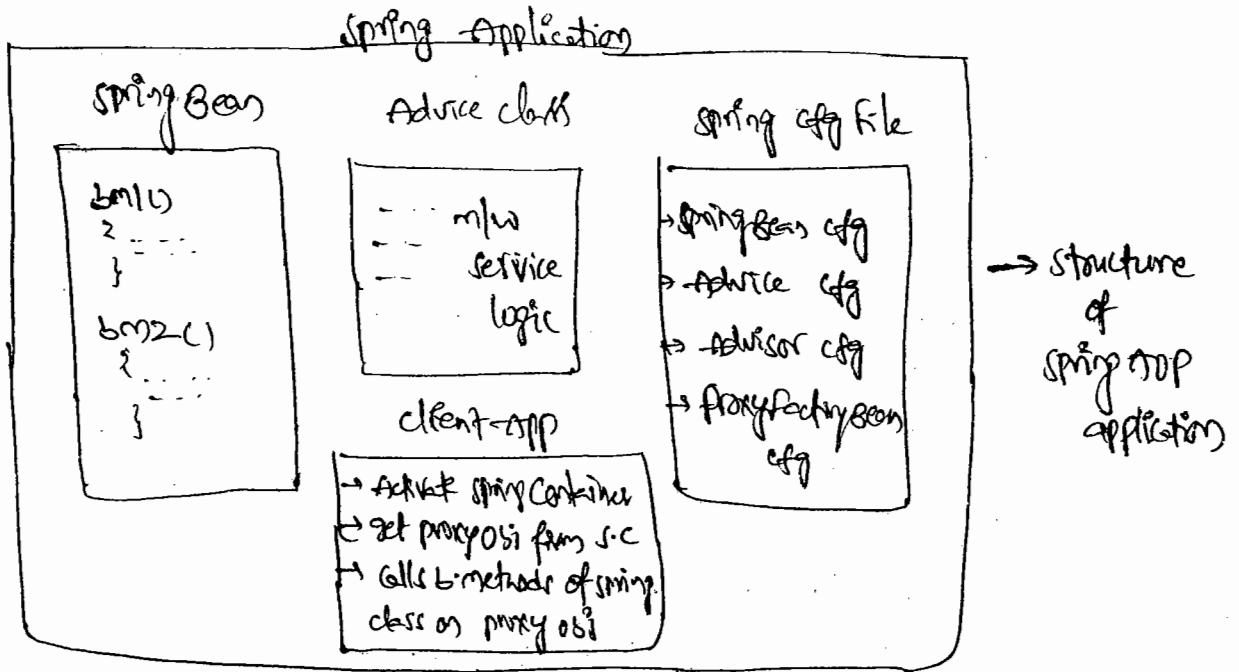 Spring Application
Spring Bean
bm1()
{ - - - -
- - - -
}
bm2()
{ - - - -
- - - -
}
Advice class
- - - m/w
- - - service
- - - logic
client-App
→ Activate spring Container
→ get proxy obj from s.c
→ calls b.methods of spring
class on proxy obj
spring cfg File
→ spring Bean cfg
→ Advice cfg
→ Advisor cfg
→ ProxyFactoryBean
cfg
→ structure
of
spring AOP
application